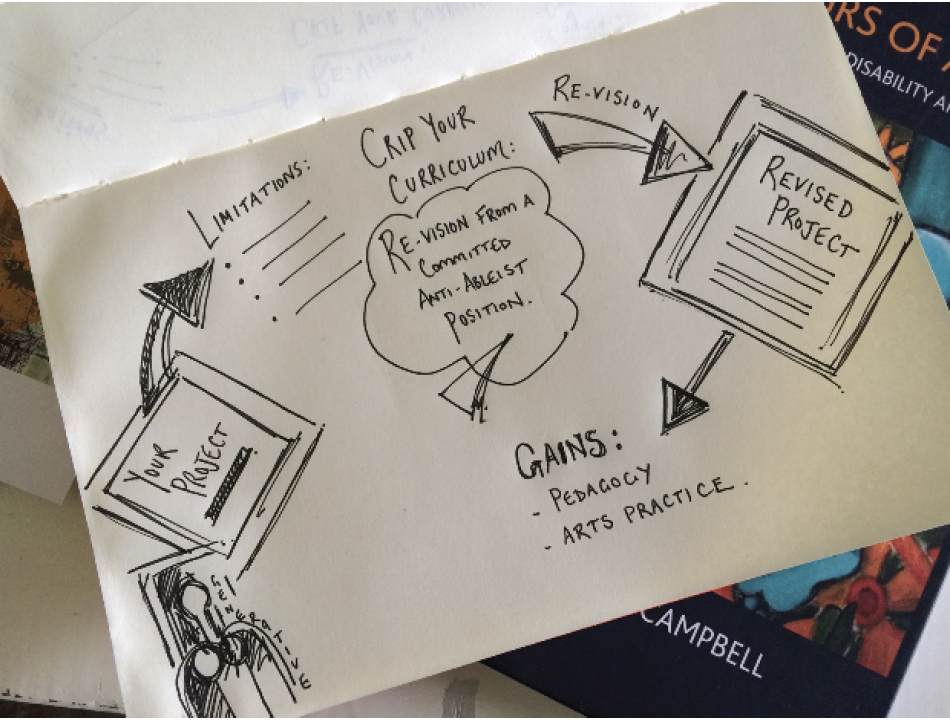 CRIP YOUR
CURRICULUM:
RE-VISION FROM A
COMMITTED
ANTI-ABLEIST
POSITION.
LIMITATIONS:
RE-VISION
REVISED
PROJECT
YOUR
PROJECT
GENERATIVE
GAINS:
- PEDAGOGY
- ARTS PRACTICE.
IRS OF
DISABILITY
CAMPBELL
CRIP YOUR
RE-VISION